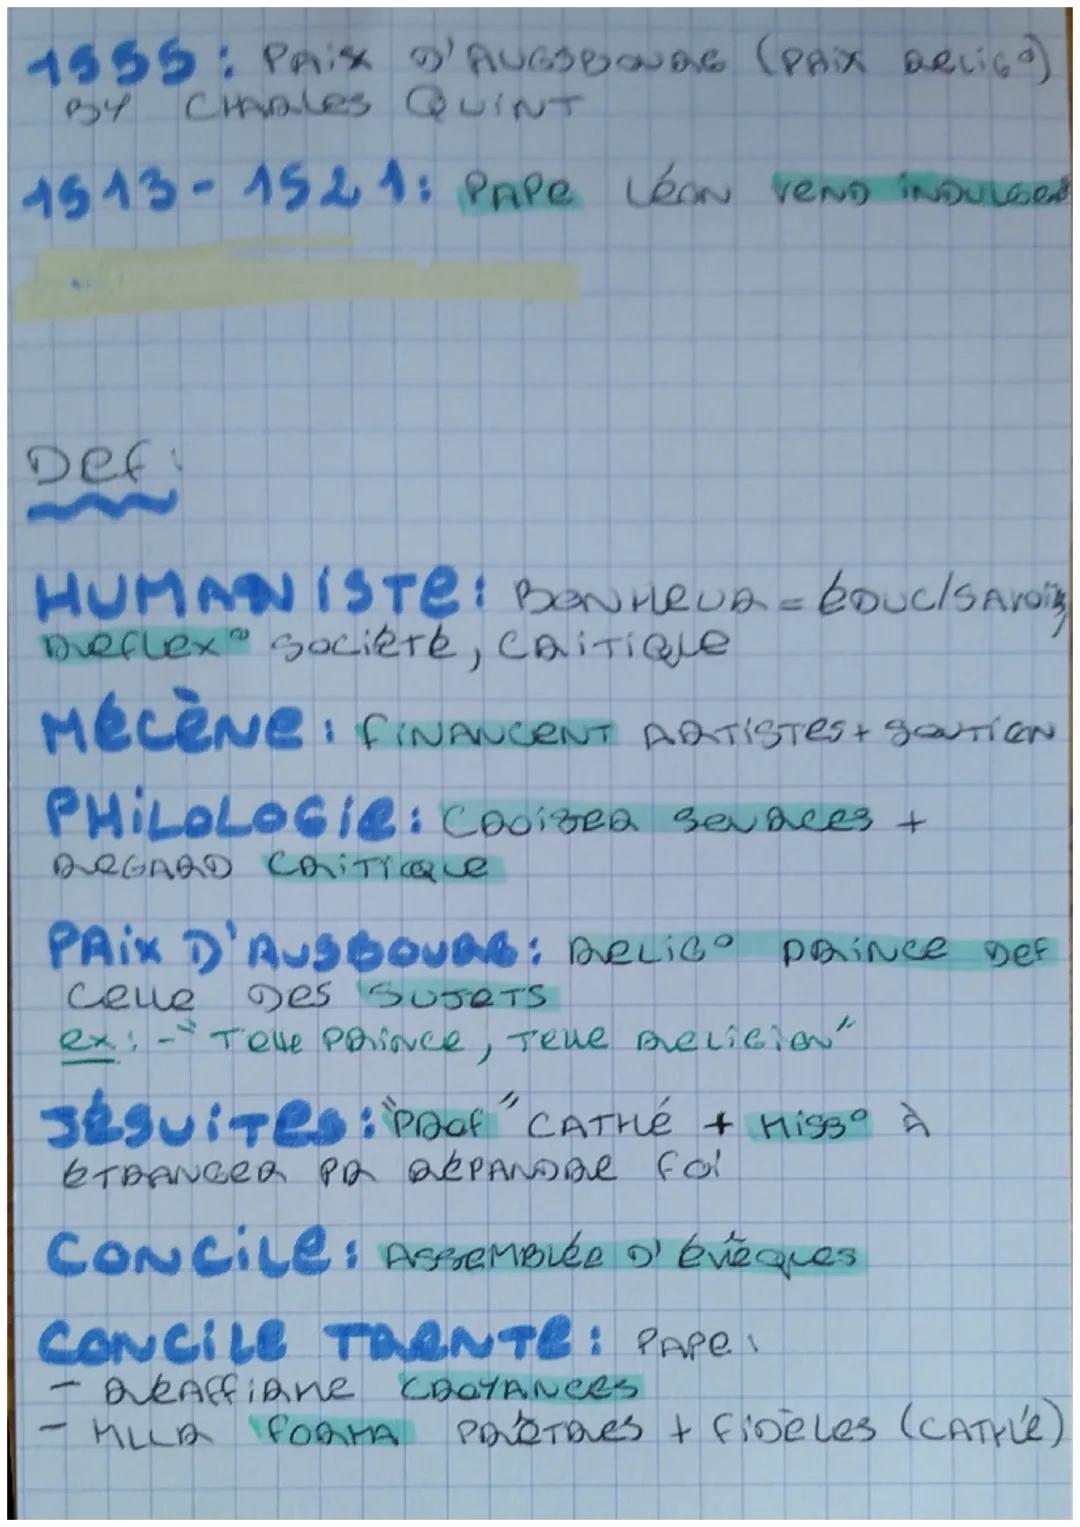 1555 : PAIX D'AUGSBOURG (PAIX RELIG°)
BY CHARLES QUINT
1513 - 1521 : PAPE LÉON VEND INDULGEN
Def :
HUMANISTE : BONHEUR = ÉDUC/SAVOIR,
REFLEX° SOCIÉTÉ, CRITIQUE
MÉCÈNE : FINANCENT ARTISTES + SOUTIEN
PHILOLOGIE : CROISER SOURCES +
REGARD CRITIQUE
PAIX D'AUSBOURG : RELIG° PRINCE DEF
CELLE DES SUJETS
ex : - "TELLE PRINCE, TELLE RELIGION"
JÉSUITES : "PROF" CATHÉ + MISS° À
ÉTRANGER PR RÉPANDRE FOI
CONCILE : ASSEMBLÉE D'ÉVÊQUES
CONCILE TRENTE : PAPE :
- RÉAFFIRME CROYANCES
- MLLR FORMA PRÊTRES + FIDÈLES (CATHÉ)